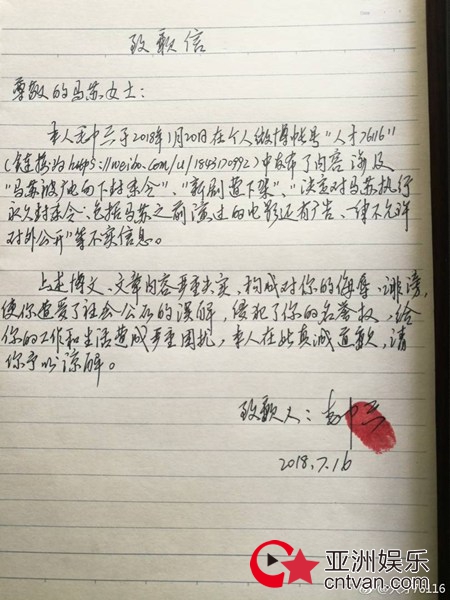 致歉信
尊敬的马苏女士：
本人 于2018年1月20日在个人微博帐号“人才76116”
（链接为https://weibo.com/u/1843170992）中发布了内容涉及
“马苏被广电下封杀令”、“新剧遭下架”、“决定对马苏执行
永久封杀令、包括马苏之前演过的电影还有广告、一律不允许
对外公开”等不实信息。
上述博文、文章内容严重失实，构成对你的侮辱、诽谤，
使你遭受了社会公众的误解，侵犯了你的名誉权，给
你的工作和生活造成严重困扰，本人在此真诚道歉，请
你予以谅解。
致歉人：
2018.7.16
亚洲娱乐
cntvan.com
76116